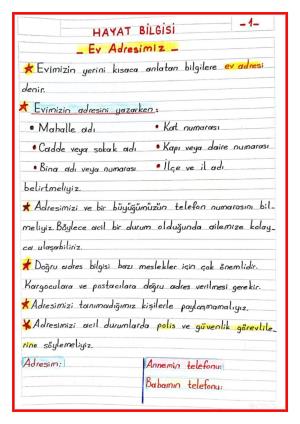 HAYAT BİLGİSİ
-1-
- Ev Adresimiz -
★ Evimizin yerini kısaca anlatan bilgilere ev adresi
denir.
★ Evimizin adresini yazarken:
• Mahalle adı • Kat numarası
• Cadde veya sokak adı • Kapı veya daire numarası
• Bina adı veya numarası • İlçe ve il adı
belirtmeliyiz.
★ Adresimizi ve bir büyüğümüzün telefon numarasını bil-
meliyiz. Böylece acil bir durum olduğunda ailemize kolay-
ca ulaşabiliriz.
★ Doğru adres bilgisi bazı meslekler için çok önemlidir.
Kargoculara ve postacılara doğru adres verilmesi gerekir.
★ Adresimizi tanımadığımız kişilerle paylaşmamalıyız.
★ Adresimizi acil durumlarda polis ve güvenlik görevlile-
rine söylemeliyiz.
Adresim: Annemin telefonu:
Babamın telefonu: